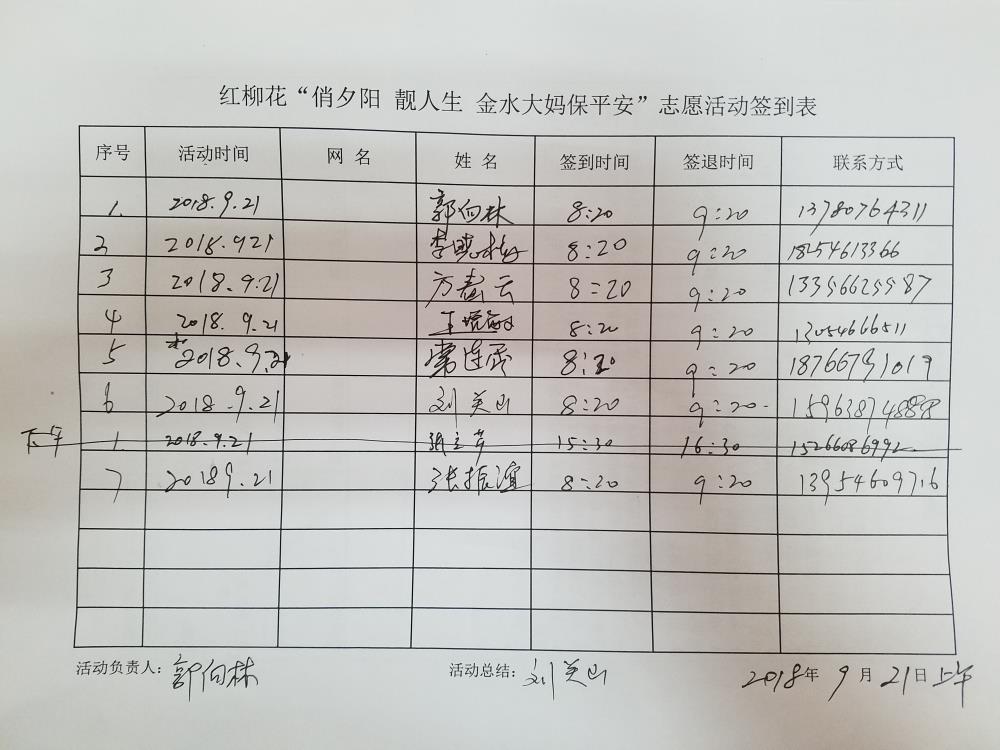 红柳花“俏夕阳 靓人生 金水大妈保平安”志愿活动签到表
序号 活动时间 网 名 姓 名 签到时间 签退时间 联系方式
1. 2018.9.21 郭向林 8:20 9:20 13780764311
2 2018.921 李晓梅 8:20 9:20 18254613366
3 2018.9.21 方 云 8:20 9:20
4 2018.9.21 8:20 9:20 13054666511
5 2018.9.21 常连 8:20 9:20 18766791017
6 2018.9.21 刘美山 8:20 9:20 15963874888
下午 1. 2018.9.21 15:30 16:30 15266086992
7 20189.21 张振谊 8:20 9:20 13954609716
活动负责人: 郭向林 活动总结: 刘美山 2018年 9 月 21日上午